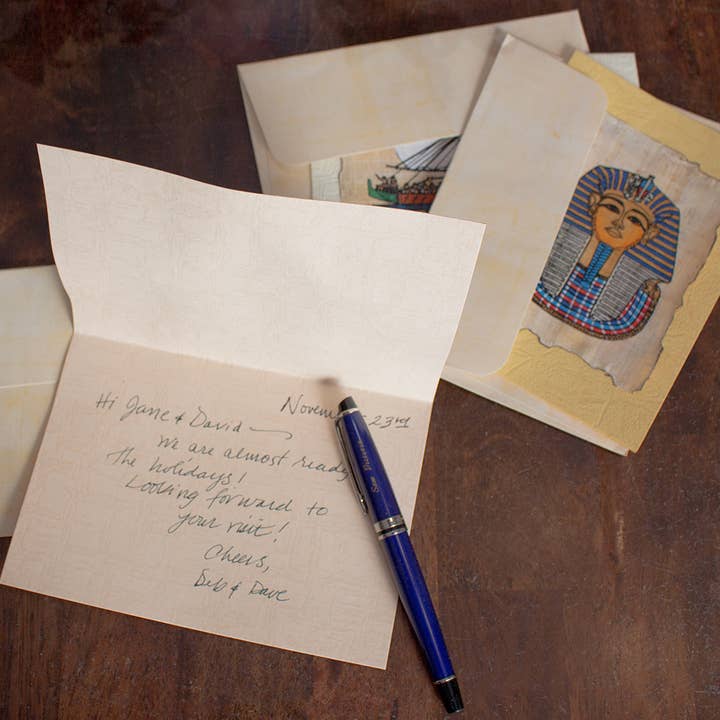 Novem 23rd
Hi Jane & David —
We are almost ready
the holidays!
Looking forward to
your visit!
Cheers,
Deb & Dave